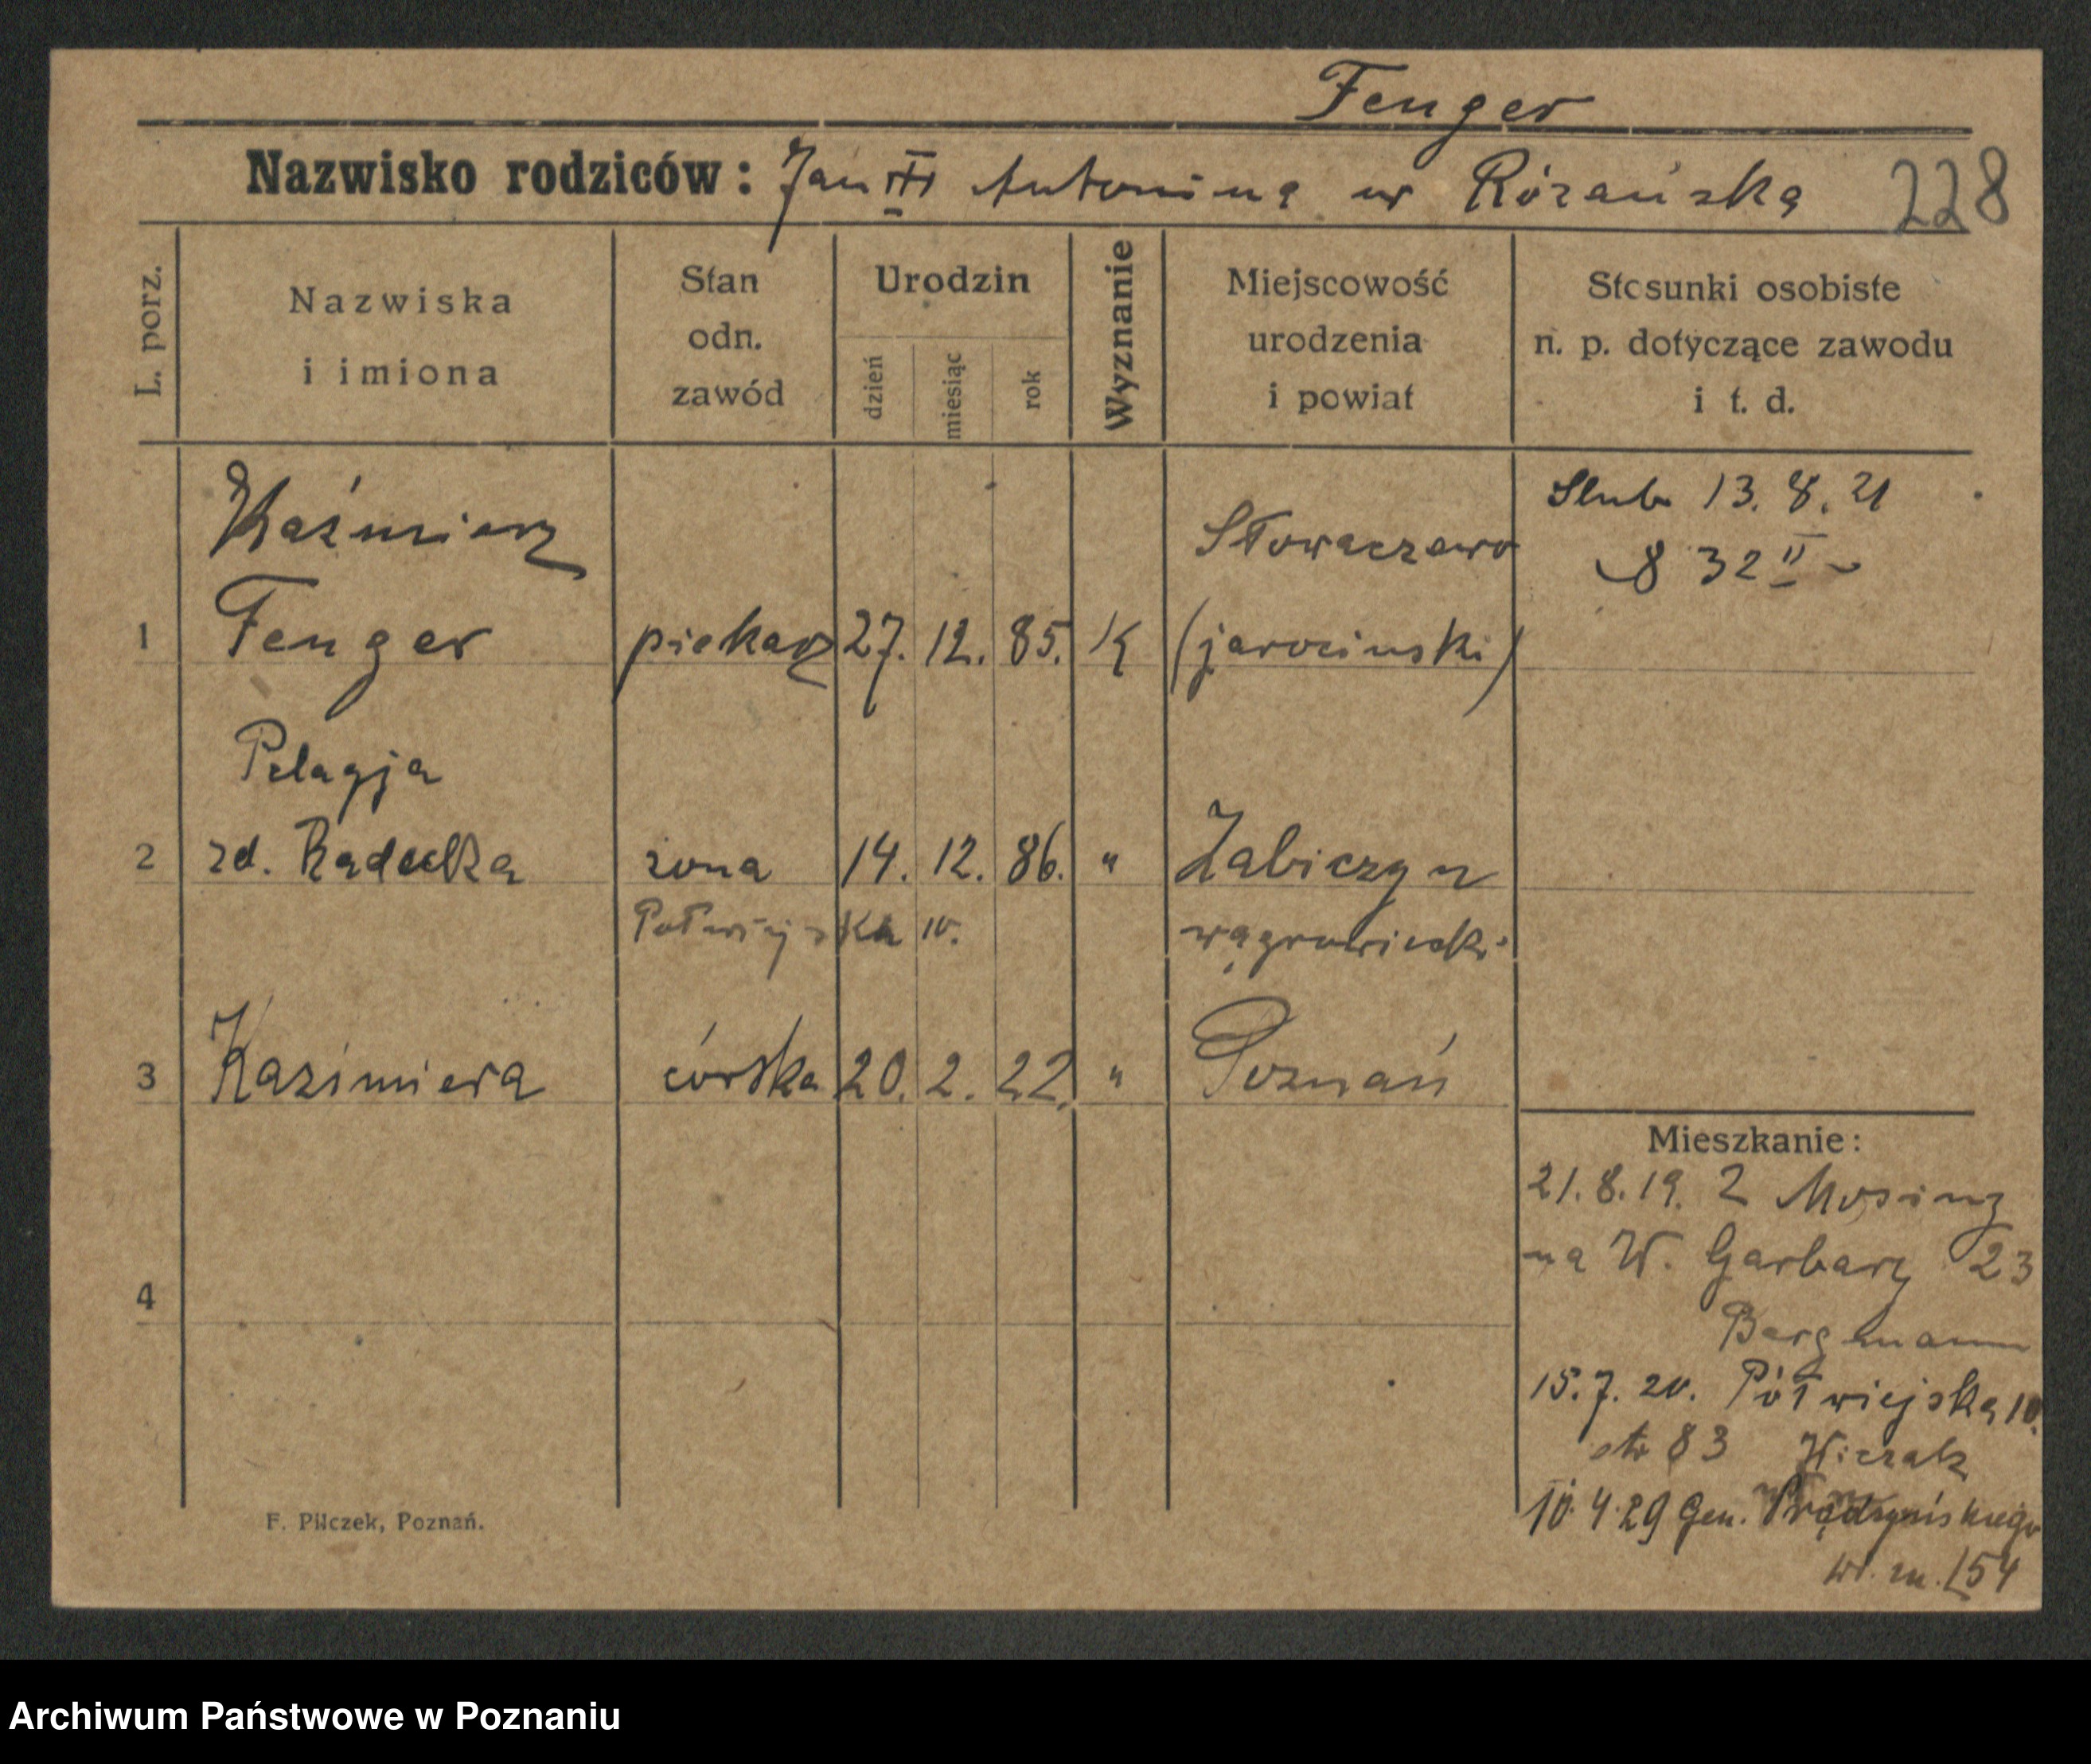 Fenger
Nazwisko rodziców: Jan Antonina Różańska 228
L. porz.
Nazwiska
i imiona
Stan
odn.
zawód
Urodzin
dzień
miesiąc
rok
Wyznanie
Miejscowość
urodzenia
i powiat
Stosunki osobiste
n. p. dotyczące zawodu
i t. d.
Kaźmierz
Fenger
1
piekarz 27. 12. 85. K
(jarocinski)
Slub 13. 8. 21
832 II
Pelagja
2 zd. Radecka zona 14. 12. 86. " Zabiczyn
Połwiejska 10. wągrowiecki
3 Kazimiera córka 20. 2. 22. " Poznań
4
Mieszkanie:
21.8.19. Z Mosiny
na W. Garbary 23
Bergmann
15.7.20. Półwiejska 10.
str 83
10.4.29 Gen. Prądzyńskiego
54
F. Pilczek, Poznań.
Archiwum Państwowe w Poznaniu